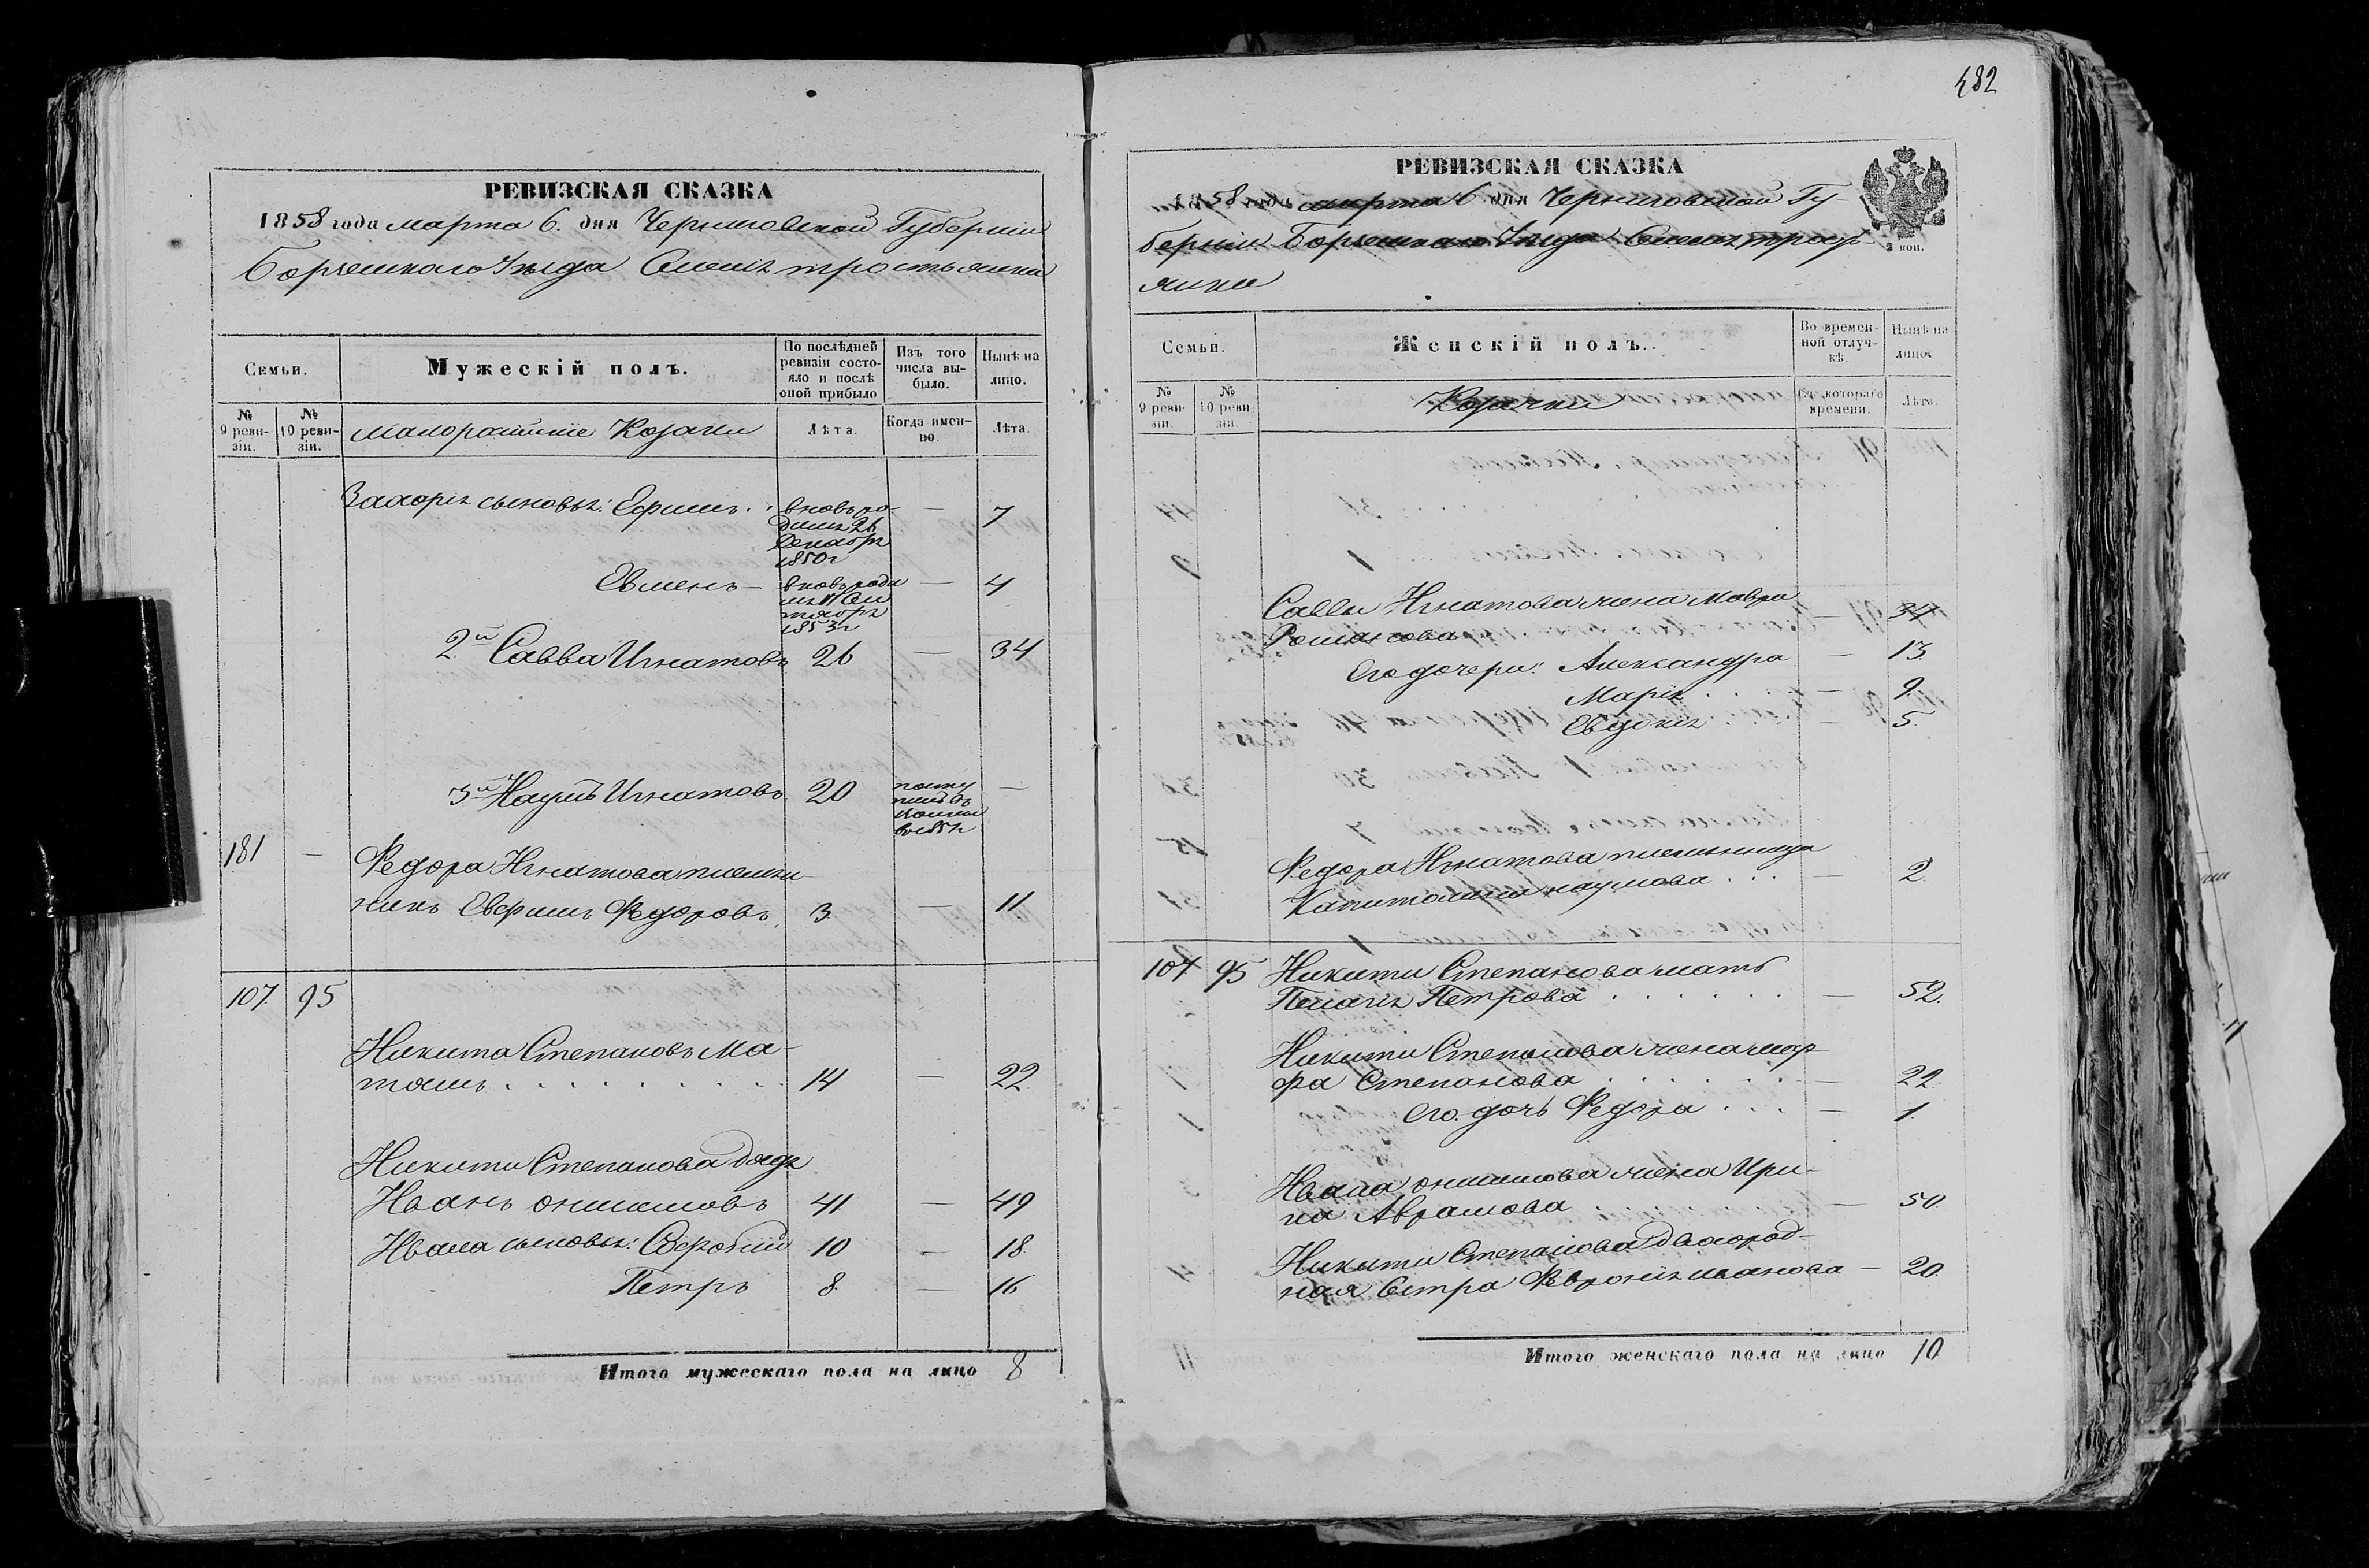 РЕВИЗСКАЯ СКАЗКА
1858 года марта 6. дня Черниговской Губернии
Борзенского Уезда Селенія тростянки
Семьи.
Мужескій полъ.
По послѣдней ревизіи состояло и послѣ оной прибыло
Изъ того числа выбыло.
Нынѣ на лицо.
№ 9 ревизіи.
№ 10 ревизіи.
малорошійскіе Козаки
Лѣта.
Когда именно.
Лѣта.
Захарія сыновья: Ефимъ. вновь ро- — 7
дился 26
Декабря
1850г
Евменъ — вновь роди — 4
лся 11 Сен
тября
1853г
2й Савва Игнатовъ 26 — 34
3й Наумъ Игнатовъ 20 —
181 — Федора Игнатова племян-
никъ Евфимъ Федоровъ. 3 — 11
107. 95
Никита Степановъ Ма-
14 — 22
Никиты Степанова дядя
Иванъ Онисимовъ 41 — 49
Ивана сыновья: 10 — 18.
Петръ 8. — 16
Итого мужескаго пола на лицо 8
482
РЕВИЗСКАЯ СКАЗКА
1858 года марта 6 дня Черниговской Гу-
берніи Борзенского Уезда Селенія трост-
янки
2 коп.
Семьи.
Женскій полъ.
Во временной отлучкѣ.
Нынѣ на лицо.
№ 9 ревизіи.
№ 10 ревизіи.
Козачки
Съ котораго времени.
Лѣта.
Саввы Игнатова жена Мавра
Романова — 34
Его дочери: Александра — 13
Марія . . . — 9.
Евдокія . . . — 5.
Федора Игнатова племянница
Капитолина наумова . . . — 2.
107 95 Никиты Степанова мать
Пелагія Петрова . . . . . . — 52.
Никиты Степанова жена мар-
фа Степанова . . . . . . — 22.
его дочь Федора . . . — 1.
Ивана Онисимова жена Ири-
на Аврамова — 50.
Никиты Степанова двоюрод-
ная Сестра Феврония иванова — 20.
Итого женскаго пола на лицо 10